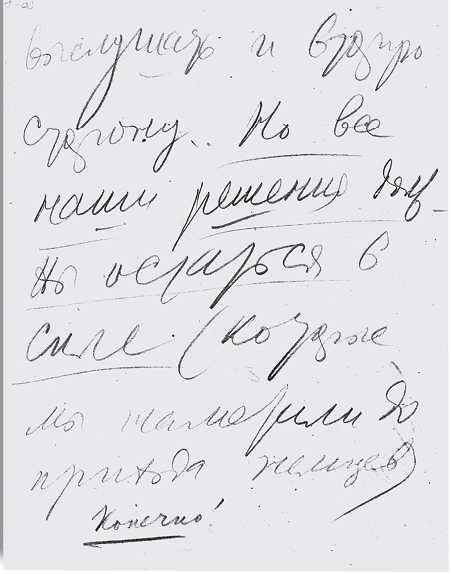 выслушать и вторую
сторону. Но все
наши решения долж-
ны остаться в
силе (которые
мы намерили до
прихода немцев)
Конечно!